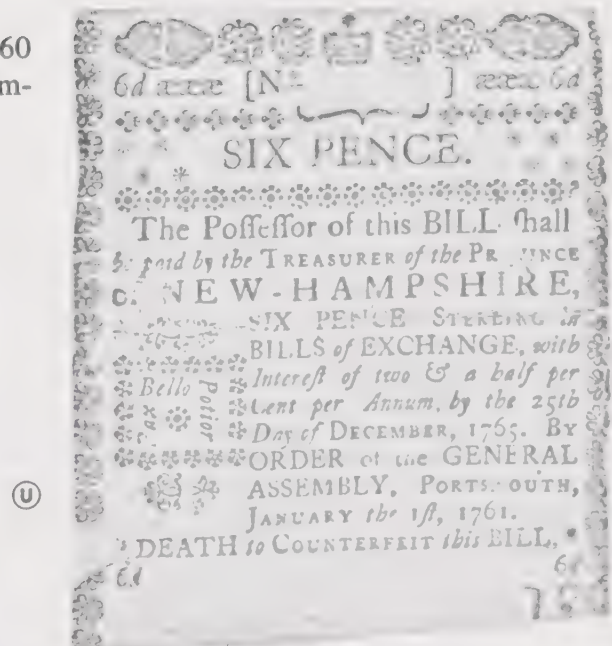 60
m-
6d [No ] 6d
SIX PENCE.
The Poſſeſſor of this BILL ſhall
be paid by the TREASURER of the PR UNCE
of NEW-HAMPSHIRE,
SIX PENCE STERLING in
BILLS of EXCHANGE, with
Intereſt of two & a half per
Cent per Annum, by the 25th
Day of DECEMBER, 1765. BY
ORDER of the GENERAL
ASSEMBLY, PORTS OUTH,
JANUARY the 1ſt, 1761.
Bello
Potior
Pax
DEATH to COUNTERFEIT this BILL,
6d 6d
U